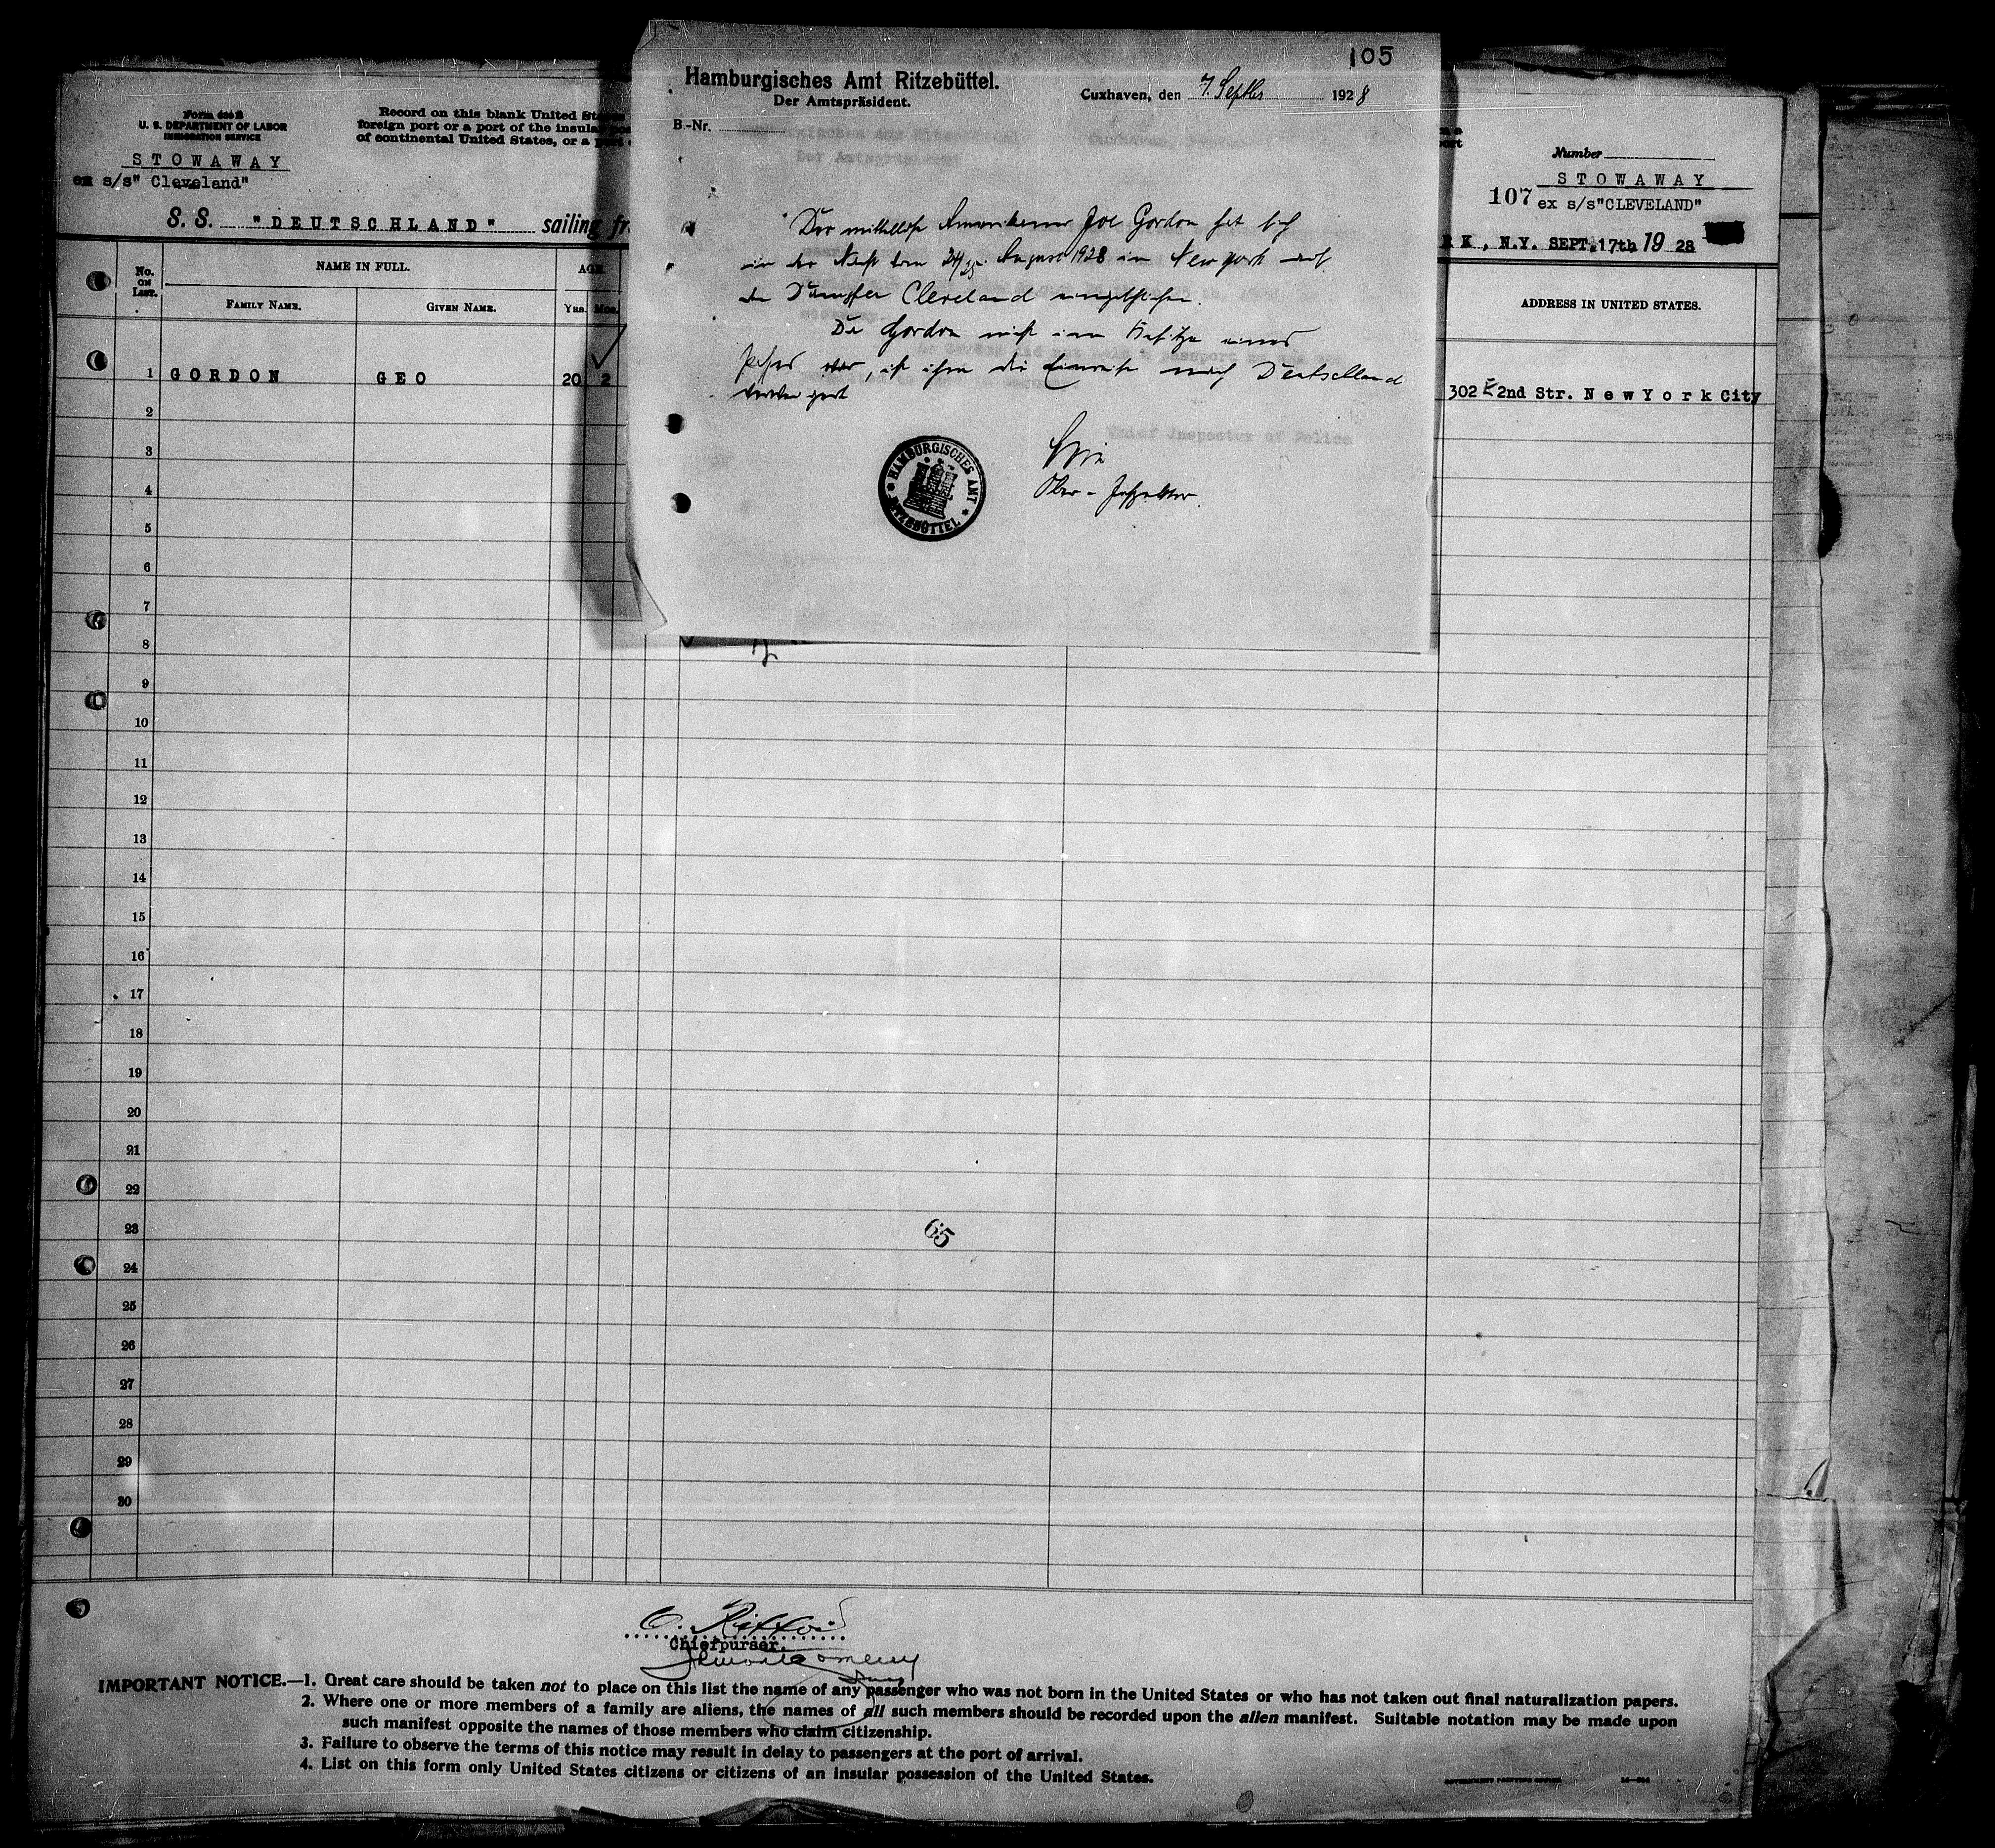 105
Hamburgisches Amt Ritzebüttel.
Der Amtspräsident.
Cuxhaven, den 7. Septbr 1928
B.-Nr.
Der mittellose Amerikaner Joe Gordon hat sich
in der Nacht vom 24/25. August 1928 in New york auf
den Dampfer Cleveland eingeschlichen.
Da Gordon nicht im Besitze eines
Passes war, ist ihm die Einreise nach Deutschland
verweigert
Ober-Inspektor.
HAMBURGISCHES AMT RITZEBÜTTEL
Chief Inspector of Police
Form 630 B
U. S. DEPARTMENT OF LABOR
IMMIGRATION SERVICE
STOWAWAY
ex s/s" Cleveland"
Record on this blank United Sta
foreign port or a port of the insula
of continental United States, or a
S. S. "DEUTSCHLAND" sailing fr
Number
STOWAWAY
107 ex s/s"CLEVELAND"
RK, N.Y. SEPT. 17th 19 28
No. ON LIST.
NAME IN FULL.
AGE
FAMILY NAME.
GIVEN NAME.
Yrs. Mos.
ADDRESS IN UNITED STATES.
1 GORDON GEO 20 2
302 E 2nd Str. NewYork City
2
3
4
5
6
7
8
9
10
11
12
13
14
15
16
17
18
19
20
21
22
23
65
24
25
26
27
28
29
30
Chiefpurser.
IMPORTANT NOTICE.—1. Great care should be taken not to place on this list the name of any passenger who was not born in the United States or who has not taken out final naturalization papers.
2. Where one or more members of a family are aliens, the names of all such members should be recorded upon the alien manifest. Suitable notation may be made upon
such manifest opposite the names of those members who claim citizenship.
3. Failure to observe the terms of this notice may result in delay to passengers at the port of arrival.
4. List on this form only United States citizens or citizens of an insular possession of the United States.
GOVERNMENT PRINTING OFFICE